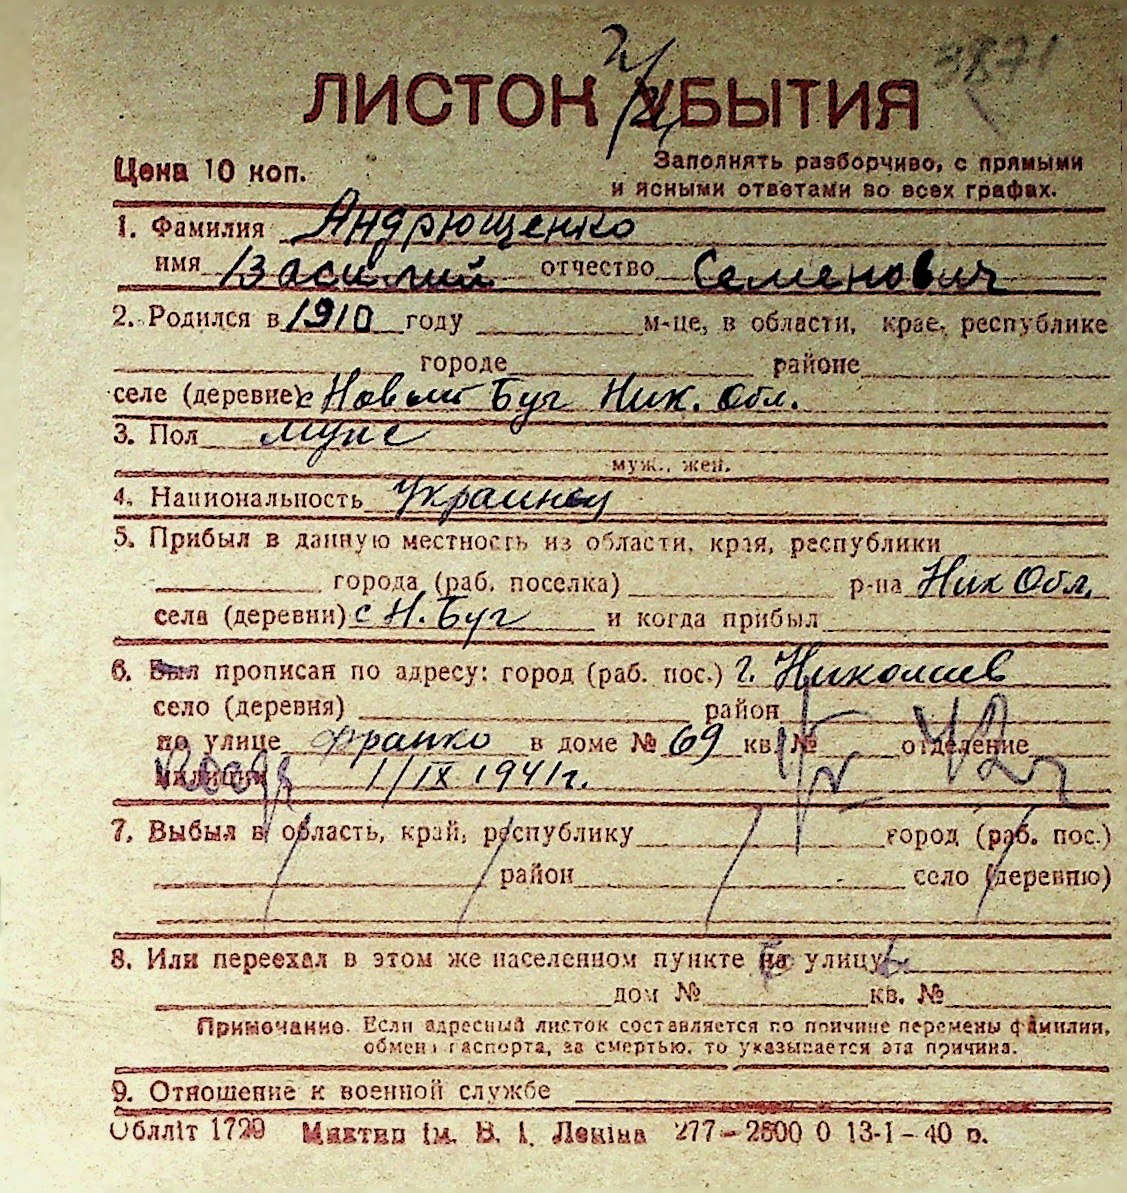 3871
ЛИСТОК УБЫТИЯ
Цена 10 коп.
Заполнять разборчиво, с прямыми
и ясными ответами во всех графах.
1. Фамилия Андрющенко
имя Василий отчество Семенович
2. Родился в 1910 году м-це, в области, крае, республике
городе районе
селе (деревне) с Новый Буг Ник. Обл.
3. Пол
муж., жен.
4. Национальность Украинец
5. Прибыл в данную местность из области, края, республики
города (раб. поселка) р-на Ник Обл.
села (деревни) с Н. Буг и когда прибыл
6. Был прописан по адресу: город (раб. пос.) г. Николаев
село (деревня) район
по улице Франко в доме № 69 кв. № отделение
милиции 1/IX 1941г.
7. Выбыл в область, край, республику город (раб. пос.)
район село (деревню)
8. Или переехал в этом же населенном пункте на улицу
дом № кв. №
Примечание. Если адресный листок составляется по причине перемены фамилии,
обмена паспорта, за смертью, то указывается эта причина.
9. Отношение к военной службе
Облліт 1729 Миктип ім. В. І. Леніна 277—2600 0 13-I—40 р.